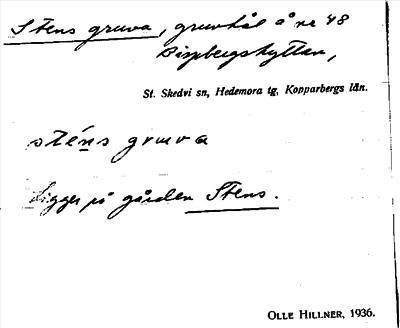 Stens gruva, gruvhål å nr 48
Bispbergshyttan,
St. Skedvi sn, Hedemora tg, Kopparbergs län.
sténs gruva
Ligger på gården Stens.
OLLE HILLNER, 1936.